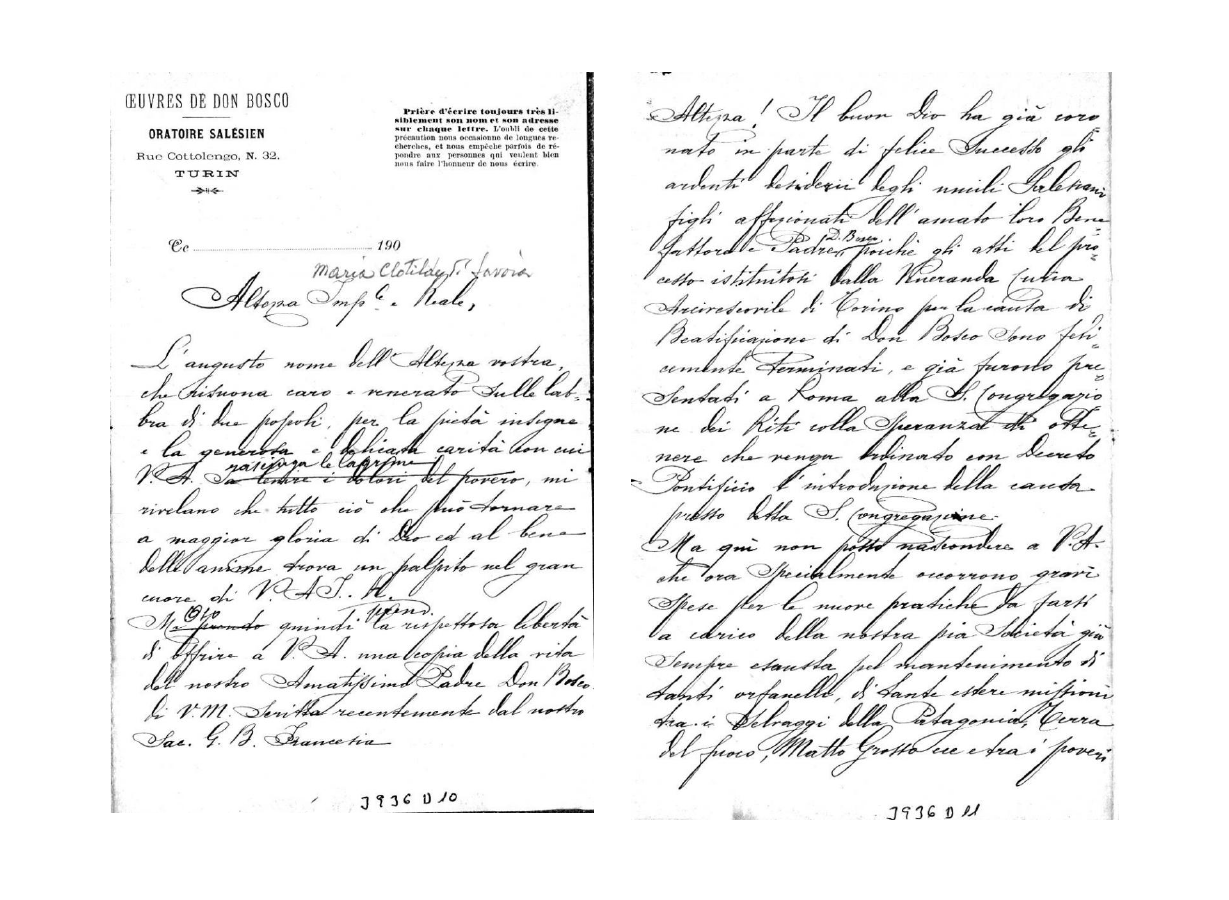 ŒUVRES DE DON BOSCO
ORATOIRE SALÉSIEN
Rue Cottolengo, N. 32.
TURIN
Prière d'écrire toujours très li-
siblement son nom et son adresse
sur chaque lettre. L'oubli de cette
précaution nous occasionne de longues re-
cherches, et nous empêche parfois de ré-
pondre aux personnes qui veulent bien
nous faire l'honneur de nous écrire.
Ce 190
Maria Clotilde di Savoia
Altezza Imp.le e Reale,
L'augusto nome dell'Altezza vostra,
che risuona caro e venerato sulle lab-
bra di due popoli, per la pietà insigne
e la generosa e delicata carità con cui
rasciuga le lagrime
V. A. sa lenire i dolori del povero, mi
rivelano che tutto ciò che può tornare
a maggior gloria di Dio ed al bene
delle anime trova un palpito nel gran
cuore di V. A. I. R.
Oso prend.
Mi prendo quindi la rispettosa libertà
di offrire a V. A. una copia della vita
del nostro Amatissimo Padre Don Bosco
di V. M. scritta recentemente dal nostro
Sac. G. B. Francesia
J936 D 10
Altezza! Il buon Dio ha già coro
nato in parte di felice successo gli
ardenti desiderii degli umili Salesiani
figli affezionati dell'amato loro Bene
D. Bosco
fattore e Padre, poichè gli atti del pro=
cesso istituitosi dalla Veneranda Curia
Arcivescovile di Torino per la causa di
Beatificazione di Don Bosco sono feli=
cemente terminati, e già furono pre=
sentati a Roma alla S. Congregazio
ne dei Riti colla speranza di otte=
nere che venga ordinato con Decreto
Pontificio l'introduzione della causa
presso detta S. Congregazione.
Ma qui non posso nascondere a V. A.
che ora specialmente occorrono gravi
spese per le nuove pratiche da farsi
a carico della nostra pia Società già
sempre esausta pel mantenimento di
tanti orfanelli, di tante estere missioni
tra i selvaggi della Patagonia, Terra
del fuoco, Matto Grosso ecc e tra i poveri
J936 D 11